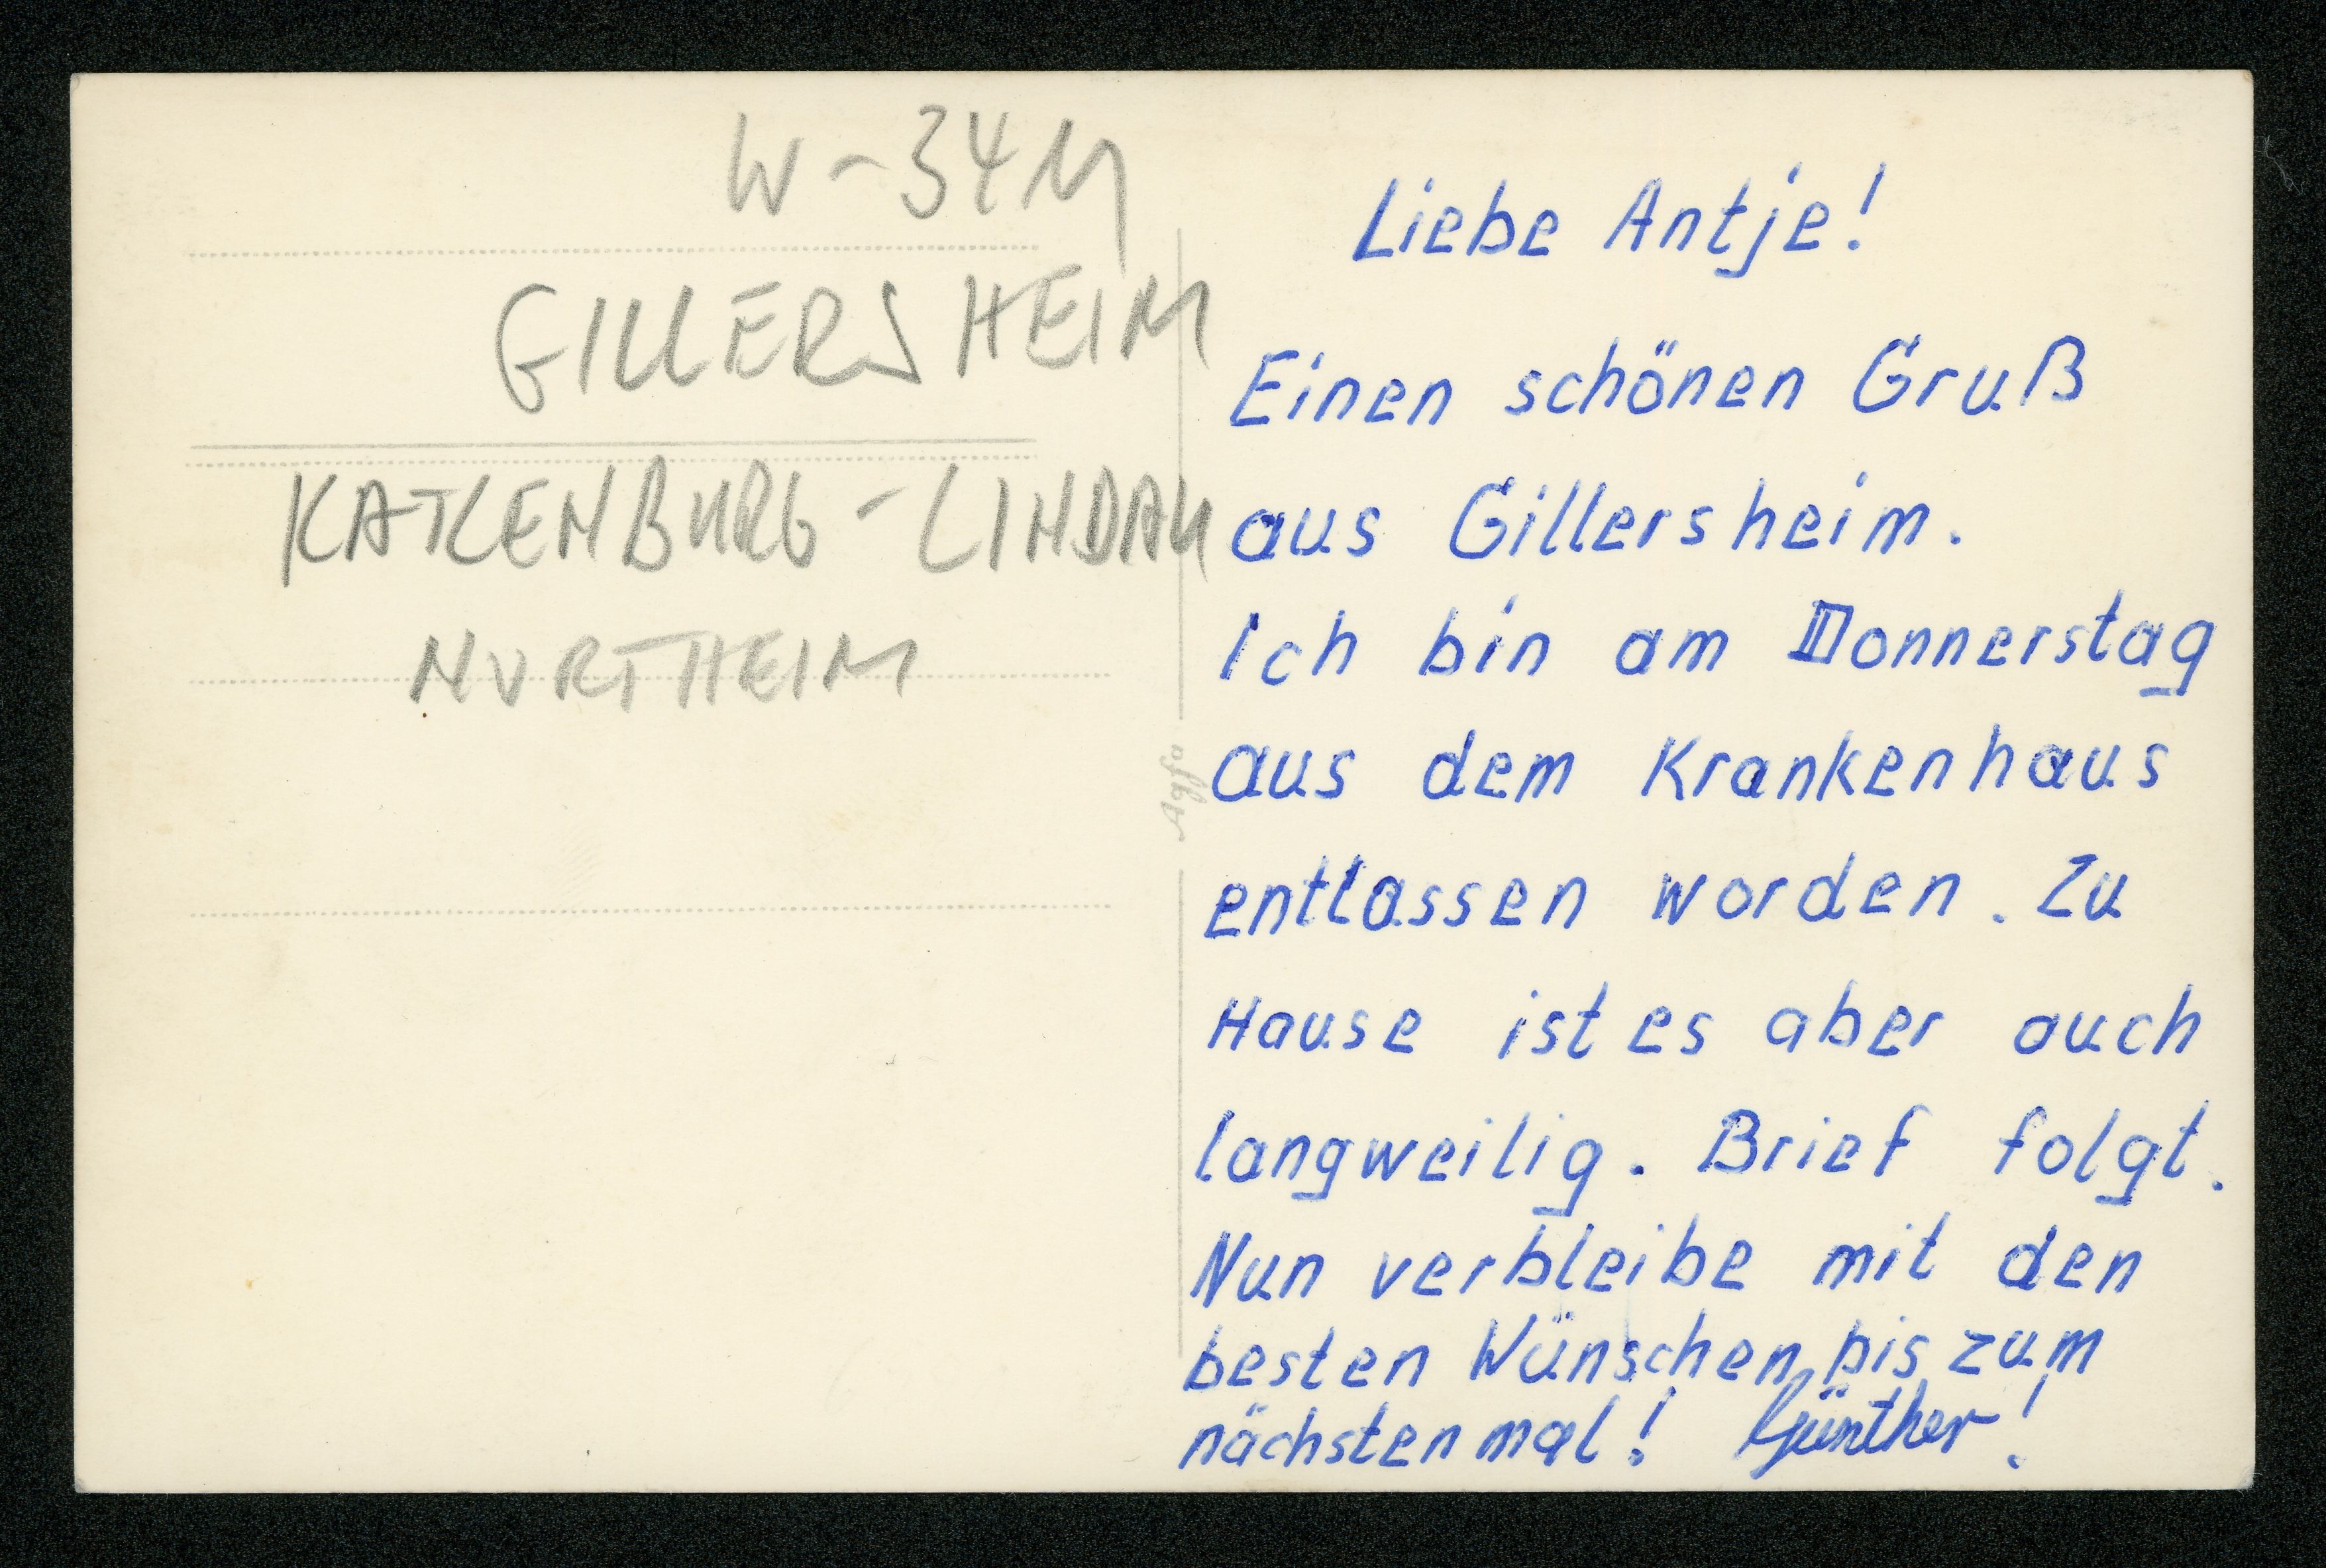 W-3411
GILLERSHEIM
KATLENBURG-LINDAU
NORTHEIM
Agfa
Liebe Antje!
Einen schönen Gruß
aus Gillersheim.
Ich bin am Donnerstag
aus dem Krankenhaus
entlassen worden. Zu
Hause ist es aber auch
langweilig. Brief folgt.
Nun verbleibe mit den
besten Wünschen bis zum
nächsten mal! Günther!